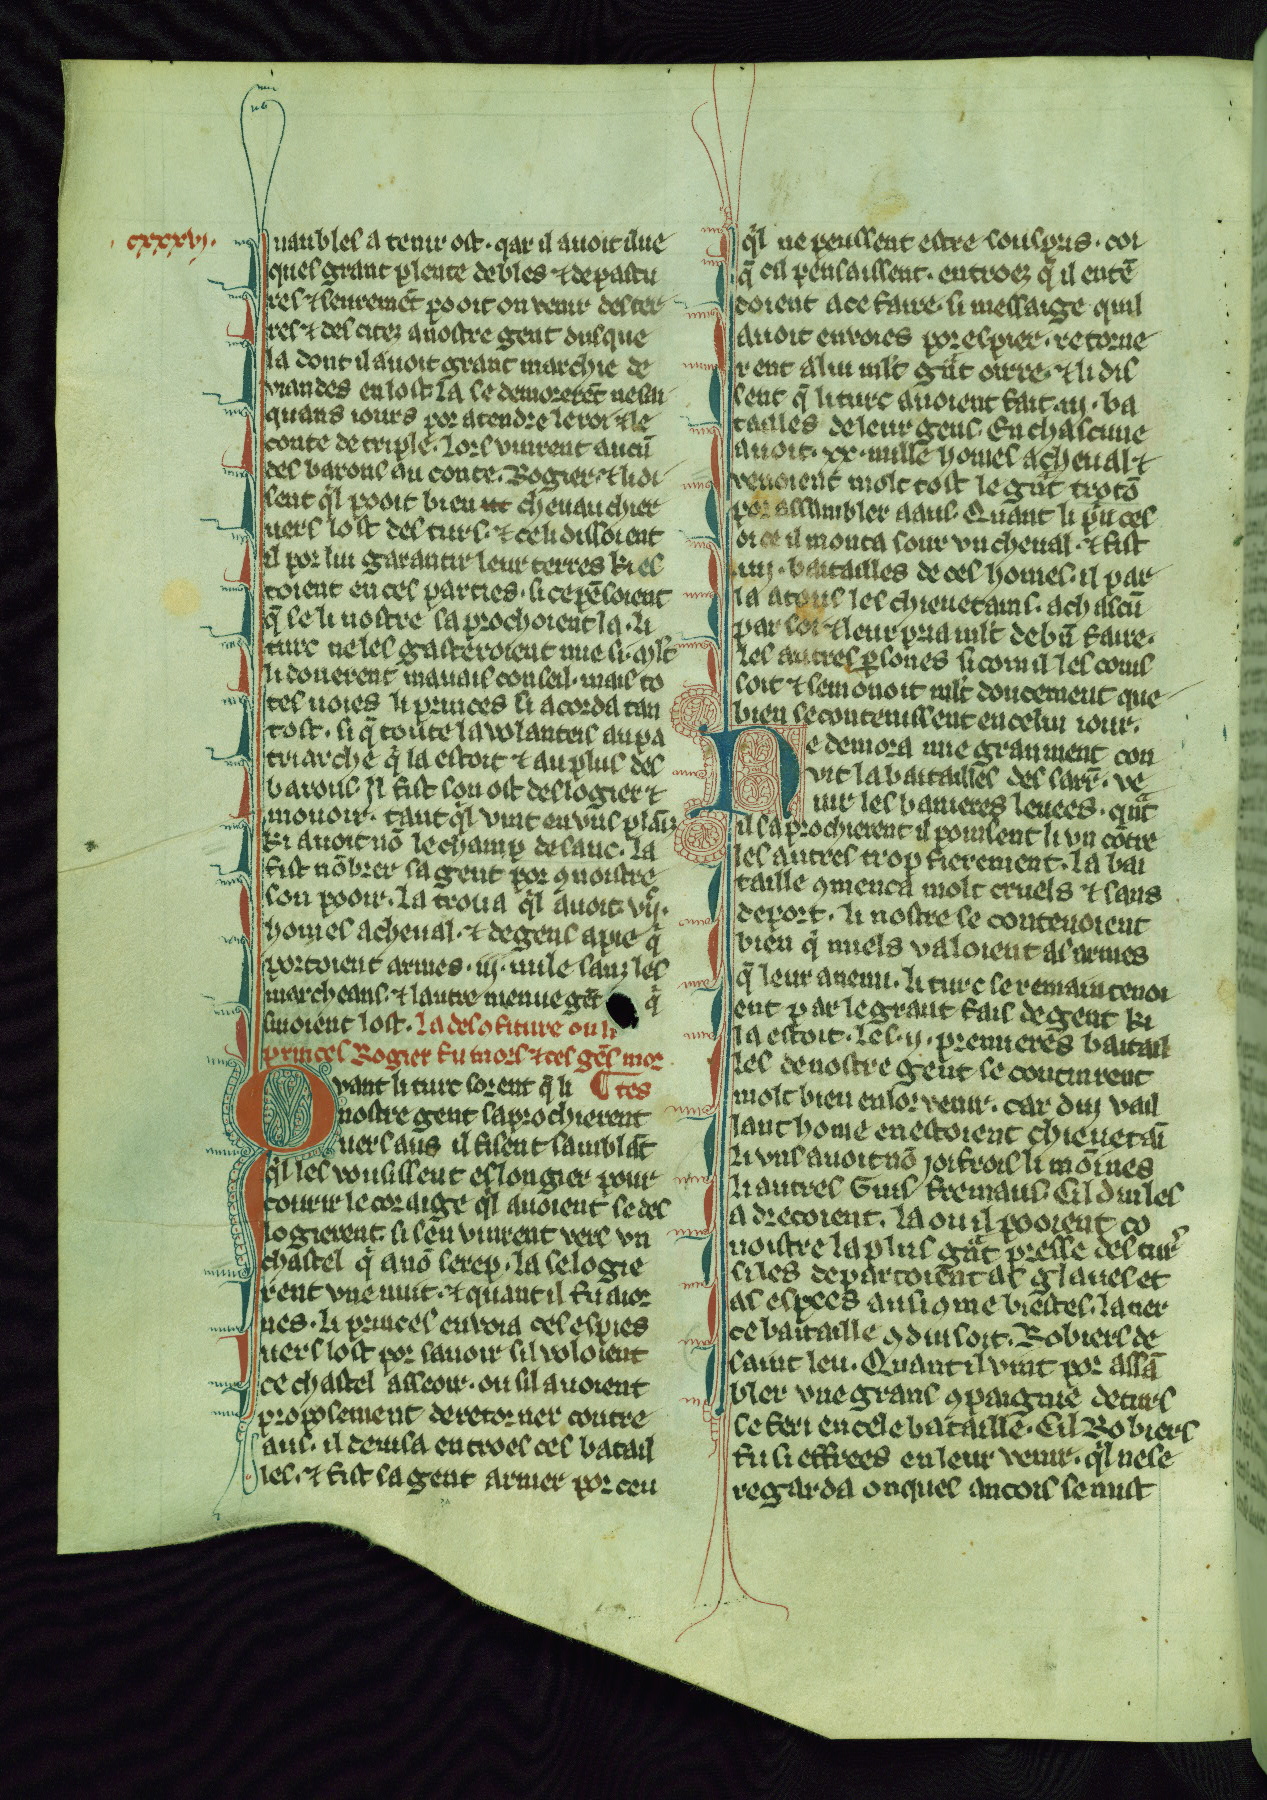 cxxxvj.
nables a tenir ost. qar il auoit ilue
ques grant plente de bles ⁊ de pastu
res ⁊ seuremēt pooit on venir des ter
res ⁊ des citez a nostre gent dusque
la dont il auoit grant marchie de
viandes en lost. La se demorerēt ne sai
quans iours por atendre le roi ⁊ le
conte de triple. Lors vinrent aucū
des barons au conte. Rogier. ⁊ li di
sent q̄l pooit bien cheuauchier
uers lost des turs. ⁊ ce li dissoient
il por lui garantir leur terres ki es
toient en ces parties. si ce pēsoient
q̄ se li nostre sa prochoient la. li
turc ne les gasteroient mie si. 
li donerent mauais conseil. mais to
tes uoies li princes si acorda tan
tost. si q̄ toute la volanteis au pa
triarche q̄ la estoit ⁊ au plus des
barons. Il fist son ost deslogier ⁊
mouoir. tant q̄l vint en vns plāīs
ki auoit nō le champ de sanc. La
fist nōbrer sa gent por ꝯnoistre
son pooir. La troua q̄l auoit. vij.
homes a cheual. ⁊ de gens a pie q̄
portoient armes. iij. mile sanz les
marcheans. ⁊ lautre menue gēt q̄
siuoient lost. La desōfiture ou li
princes Rogier fu mors ⁊ ces gēs mor
tes
Qvant li turc sorent q̄ li
nostre gent saprochierent
uers aus il fisent samblāt
q̄l les vousissent eslongier pour
courir le coraige q̄l auoient se des
logierent. si sen vinrent vers vn
chastel q̄ a nō serep. La se logie
rent vne nuit. ⁊ quant il fu aior
nes. li princes enuoia ces espies
uers lost por sauoir sil voloient
ce chastel asseoir. ou sil auoient
proposement de retorner contre
aus. il deuisa entroes ces batail
les. ⁊ fist sa gent armer por ceu
q̄l ne peussent estre souspris. coi
q̄ cil pensaissent. entroez q̄ il entē
doient a ce faire. si messaige quil
auoit enuoies por espier. retorne
rent a lui ml't gūt oirre. ⁊ li dis
sent q̄ li turc auoient fait. iij. ba
tailles de leur gens. En chascune
auoit. xx. mille homes a cheual ⁊
venoient molt tost le gūt trotō
por assambler a aus. Quant li p̄nces
oi ce il monta sour vn cheual. ⁊ fist
iiij. bataailles de ces homes. il par
la a tous les chieuetains. a chascū
par soi ⁊ leur pria ml't de bn̄ faire.
les autres ꝑsones si com il les conis
soit ⁊ semonoit ml't doucement que
bien se contenissent en celui iour.
Ne demora mie granment con
vit la bataailles des sarr̄. ve
nir les banieres leuees. quāt
il saprochierent il poinsent li vn cōtre
les autres trop fierement. la bai
taille ꝯmenca molt cruels ⁊ sans
deport. li nostre se contenoient
bien q̄ miels valoient as armes
q̄ leur anemi. li turc se remaintenoi
ent par le grant fais de gent ki
la estoit. Les. ij. premieres baitail
les de nostre gent se continrent
molt bien en lor venir. car dui vail
lant home en estoient chieuetai
li vns auoit nō joifrois li moines
li autres Guis fremaus. Cil dui les
adrecoient. la ou il pooient co
noistre la plus gūt presse des turs
si les departoient as glaues et
as espees ausi ꝯme biestes. la tier
ce baitaille ꝯduisoit. Robiers de
saint leu. Quant il vint por assā
bler vne grans ꝯpaignie de turs
se feri en cele bataille. Cil Robiers
fu si effrees en leur venir. q̄l ne se
regarda onques ancois se mist